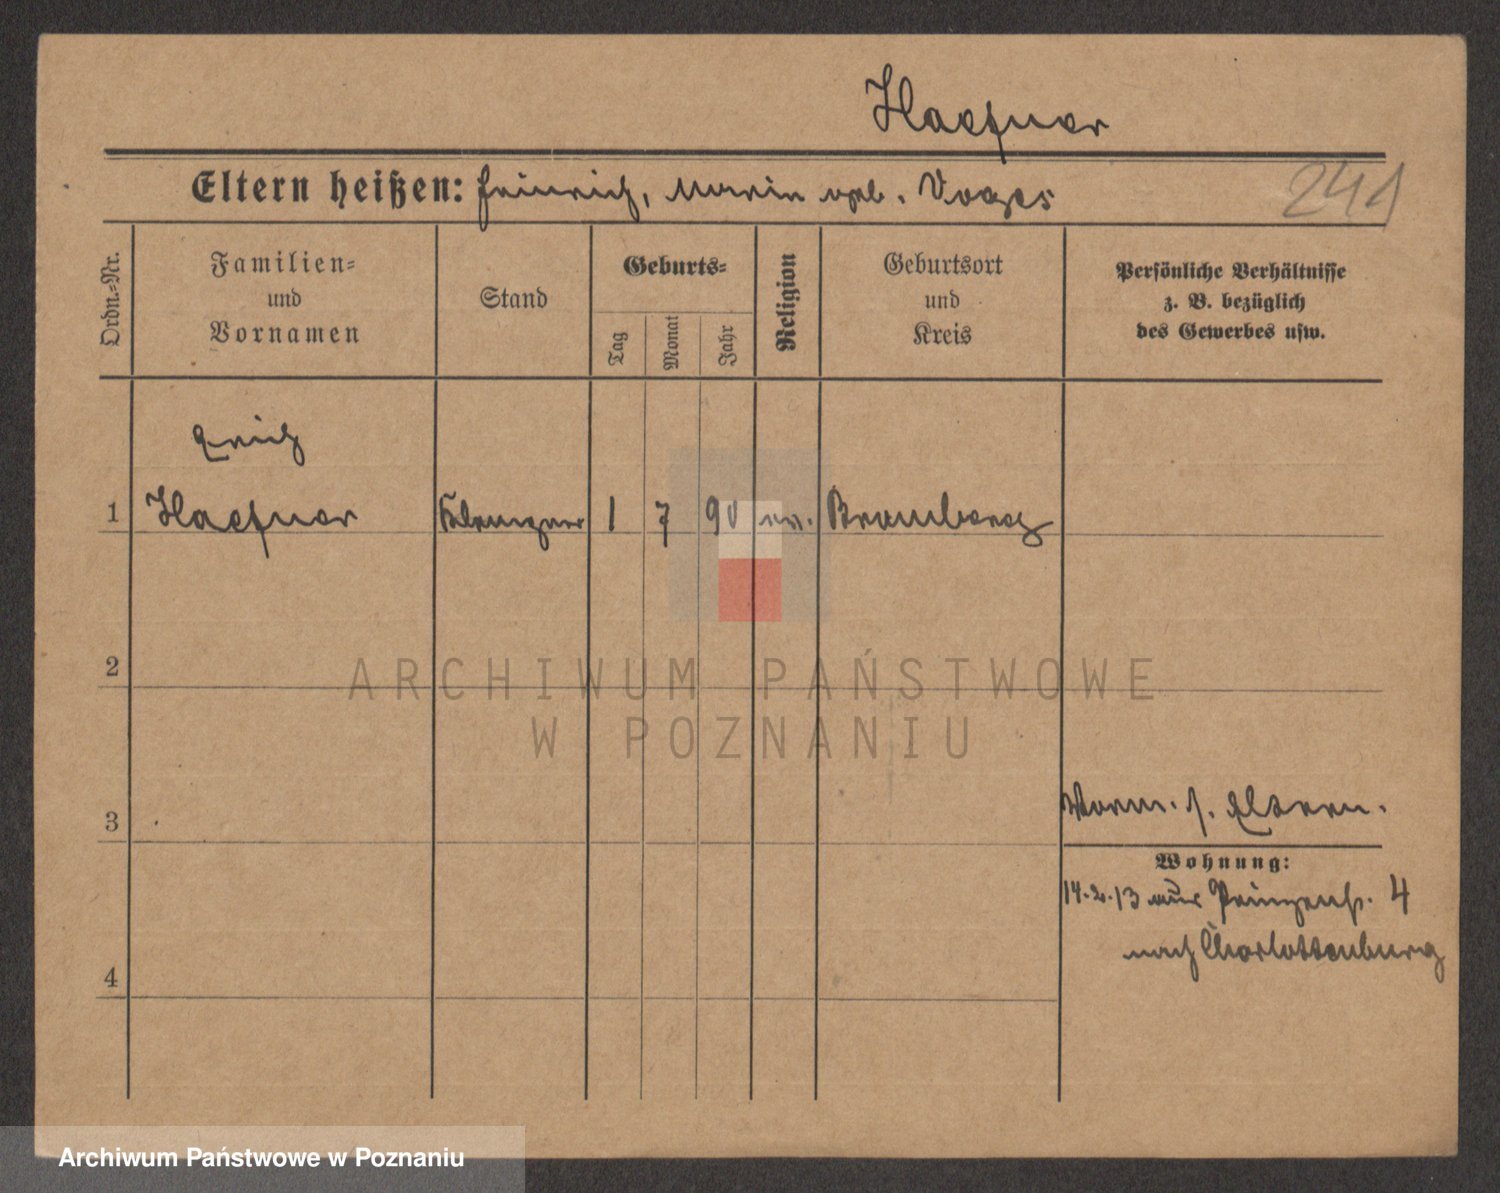 Haefner
Eltern heißen: Heinrich, Marie geb. Voges
241
Ordn.=Nr.
Familien=
und
Vornamen
Stand
Geburts=
Tag
Monat
Jahr
Religion
Geburtsort
und
Kreis
Persönliche Verhältnisse
z. B. bezüglich
des Gewerbes usw.
Erich
1 Haefner Klempner 1 7 90 ev. Bromberg
2
ARCHIWUM PAŃSTWOWE
W POZNANIU
3
Vorm. s. Eltern.
Wohnung:
14.2.13 aus Prinzenstr. 4
nach Charlottenburg
4
Archiwum Państwowe w Poznaniu